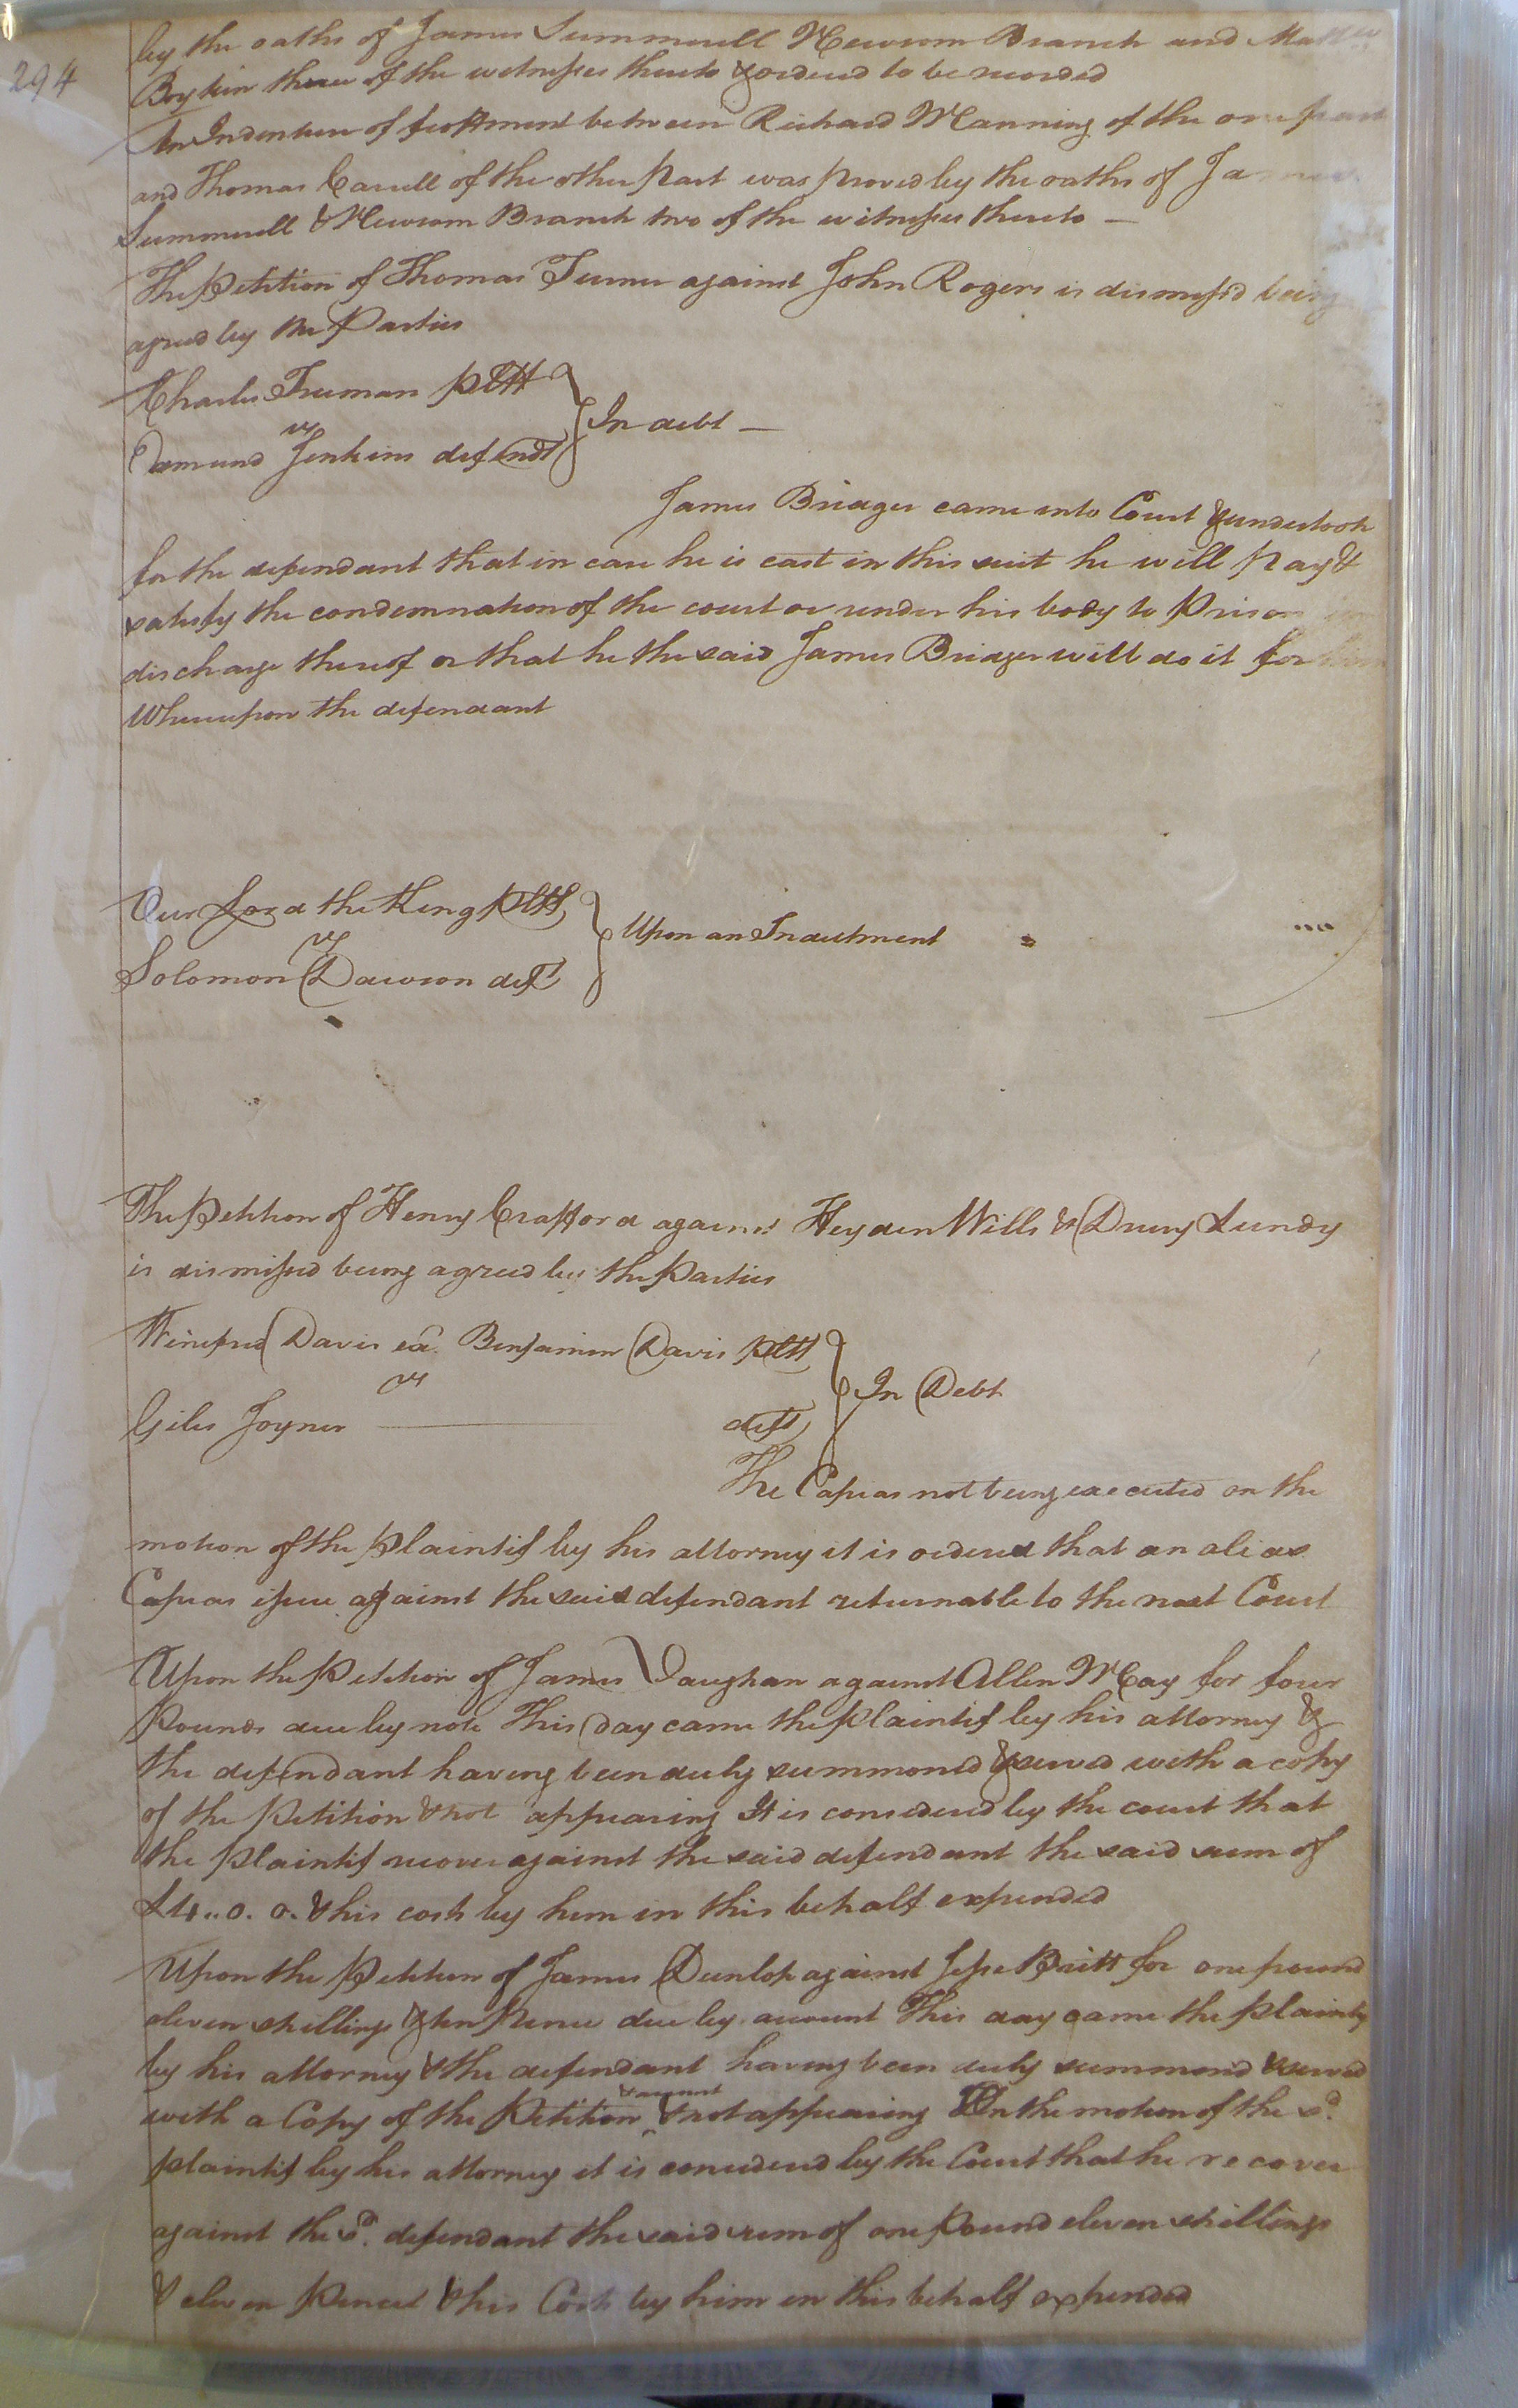 294
by the oaths of James Summerell Newsom Branch and
Boykin three of the witnesses thereto & ordered to be recorded
An Indenture of feoffment between Richard Manning of the one part
and Thomas Carrell of the other part was proved by the oaths of Ja
Summerell & Newsom Branch two of the witnesses thereto —
The Petition of Thomas Turner against John Rogers is dismiss'd being
agreed by the Parties
Charles Truman pltf
vs
In debt —
Edmund Jenkins defendt
James Bridger came into Court & undertook
for the defendant that in case he is cast in this suit he will pay &
satisfy the condemnation of the court or render his body to Prison in
discharge thereof or that he the said James Bridger will do it for him
Whereupon the defendant
Our Lord the King pltf
vs
Upon an Indictment
Solomon Dawson deft
The Petition of Henry Crafford against Heyden Wills & Drury Lundy
is dismissed being agreed by the Parties
Winifred Davis ex. Benjamin Davis pltf
vs
In Debt
Giles Joyner — deft
The Capias not being executed on the
motion of the Plaintif by his attorney it is ordered that an alias
Capias issue against the said defendant returnable to the next Court
Upon the Petition of James Vaughan against Allen McCay for four
Pounds due by note This day came the plaintif by his attorney &
the defendant having been duly summoned & served with a copy
of the Petition & not appearing It is considered by the court that
the plaintif recover against the said defendant the said sum of
£4..0.0. & his costs by him in this behalf expended
Upon the Petition of James Dunlop against Jesse Britt for one pound
eleven shillings & ten Pence due by account This day came the plaintif
by his attorney & the defendant having been duly summond & served
with a Copy of the Petition & account & not appearing On the motion of the sd.
plaintif by his attorney it is considered by the Court that he recover
against the sd. defendant the said sum of one Pound eleven shillings
& eleven Pence & his Costs by him in this behalf expended